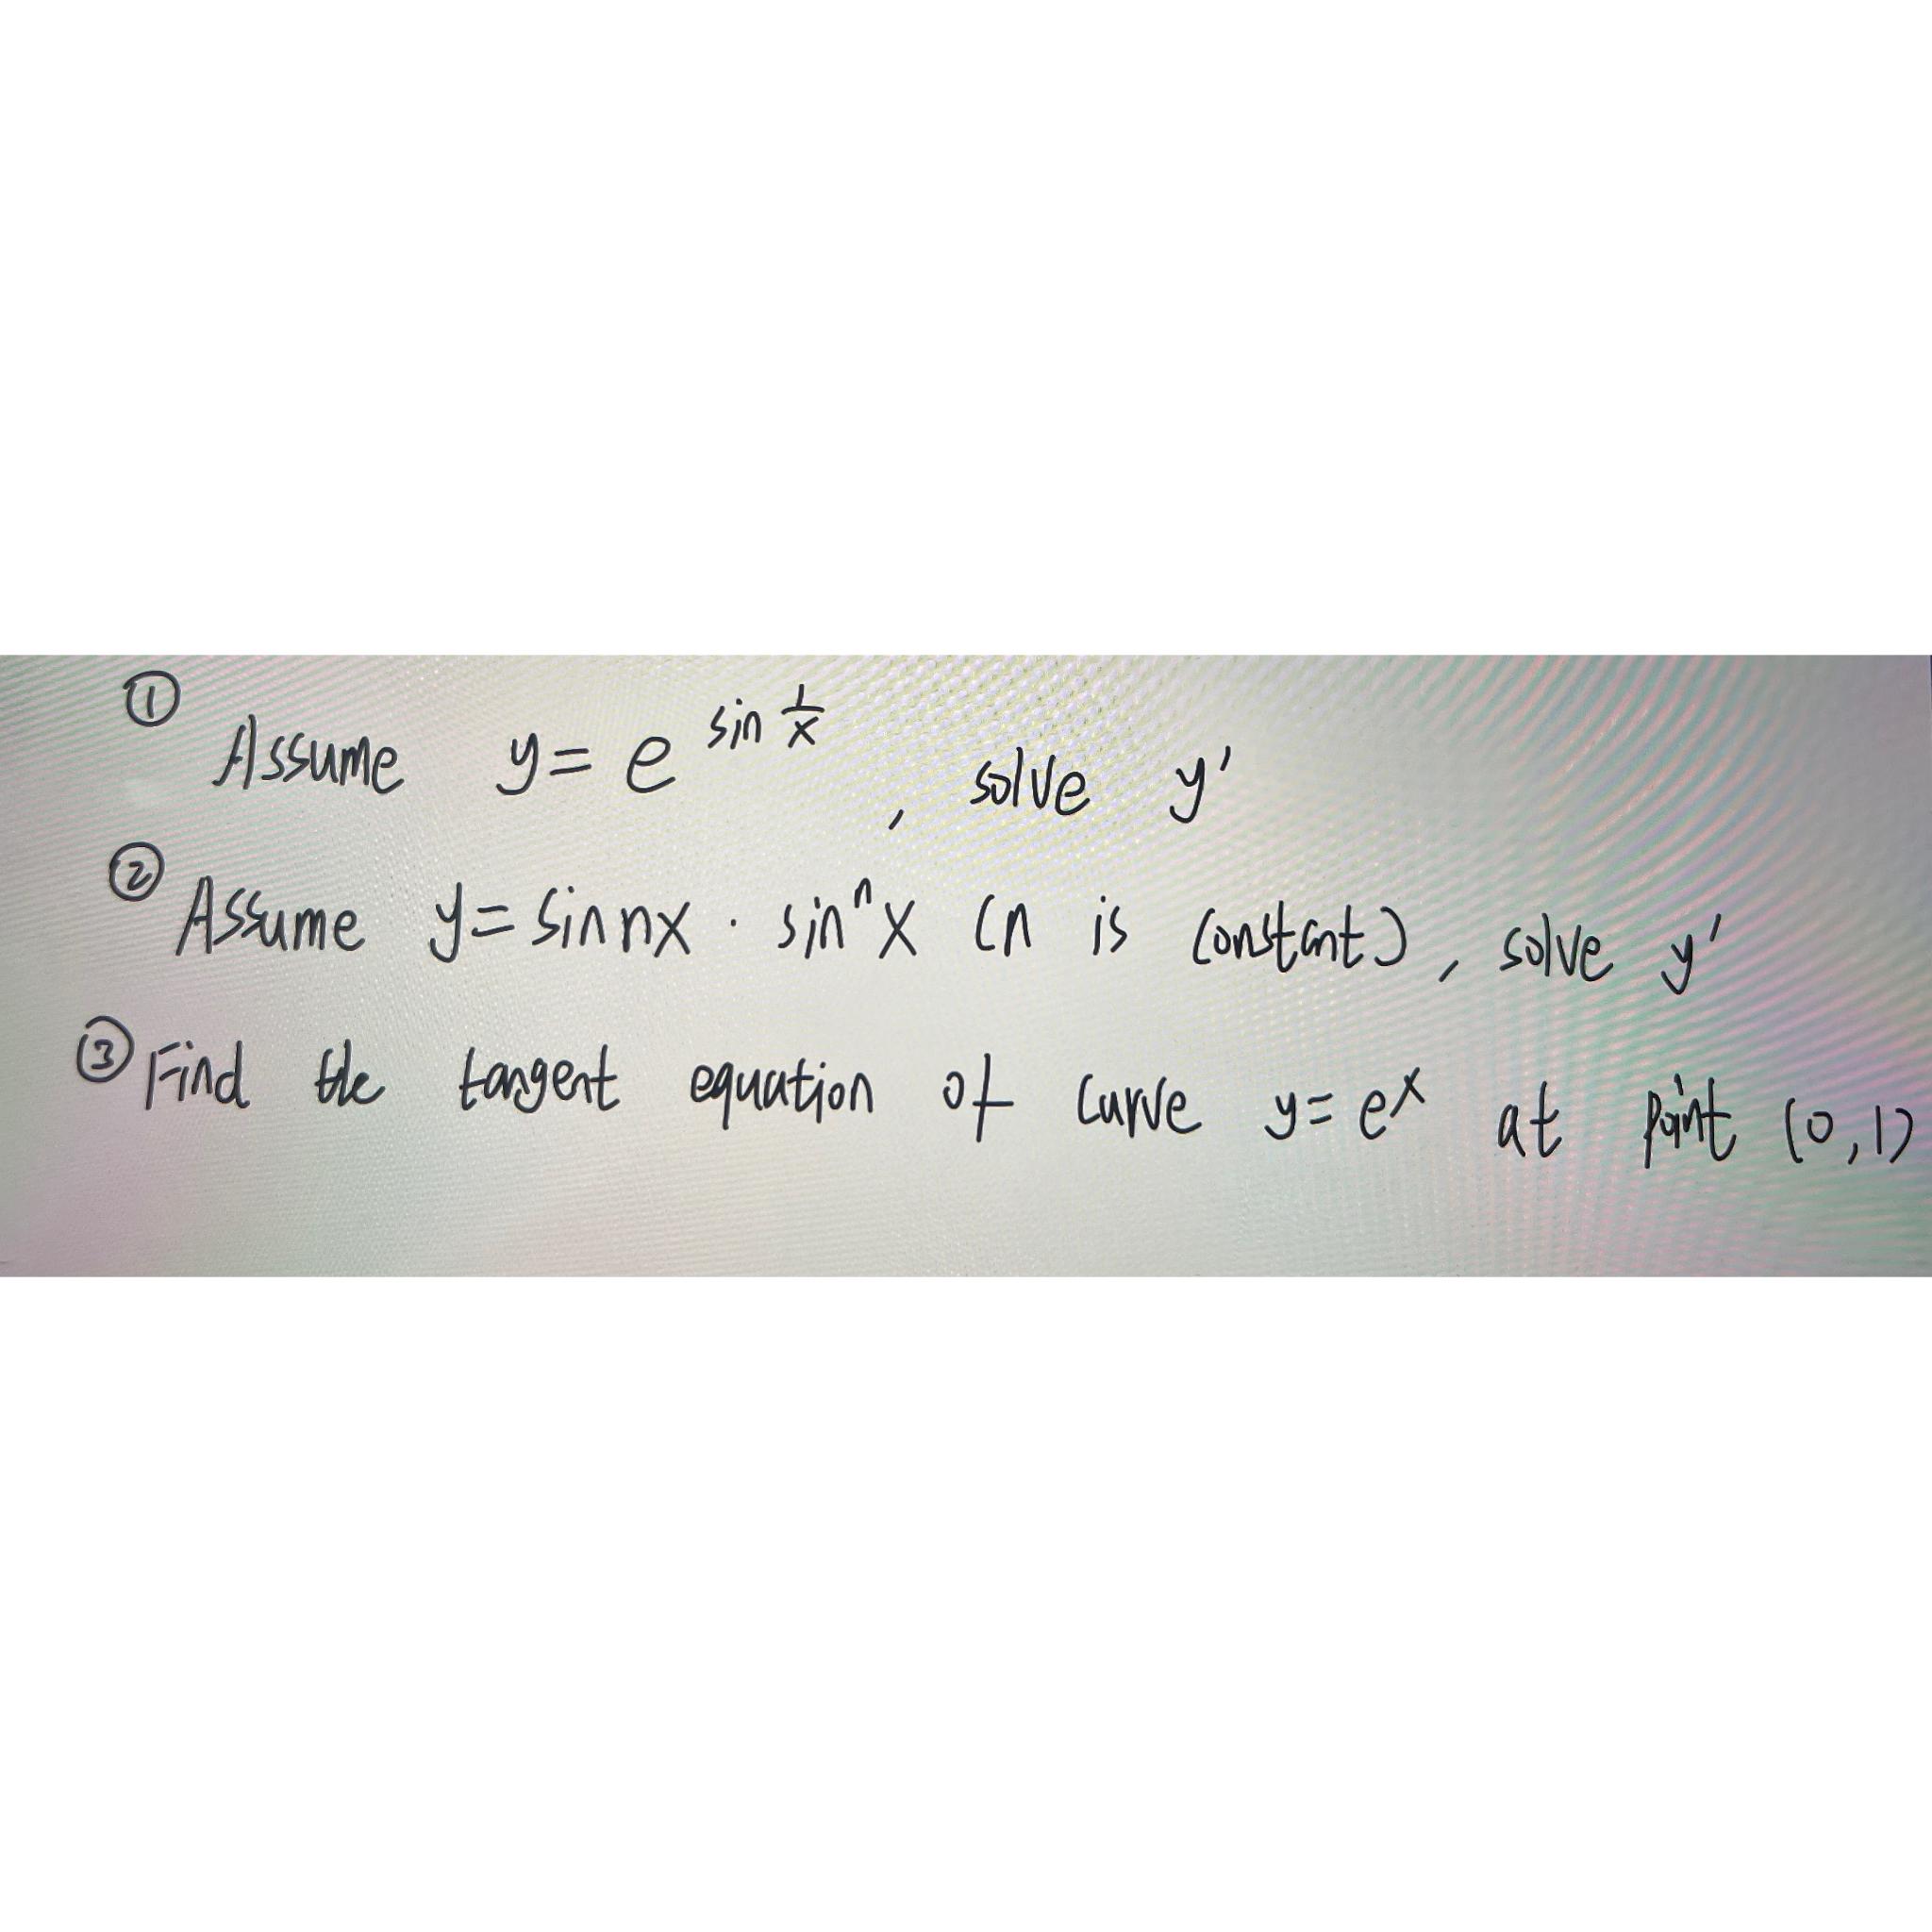 ① Assume y = e^{sin 1/x}, solve y'
② Assume y = sin nx · sin^n x (n is constant), solve y'
③ Find the tangent equation of curve y = e^x at point (0,1)